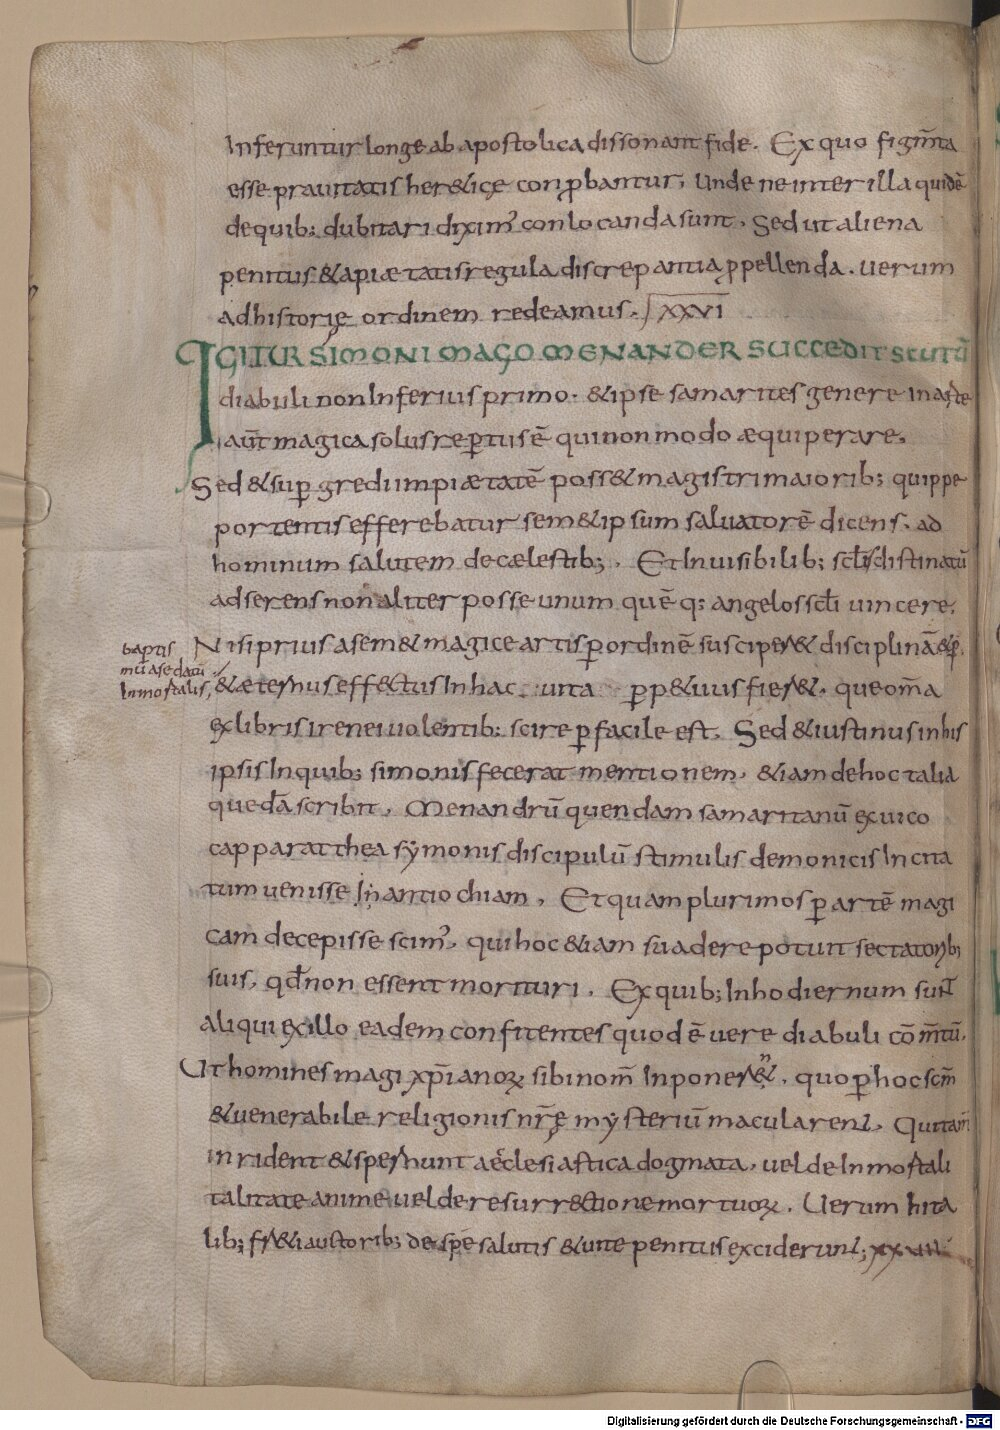 Inferuntur longe ab apostolica dissonant fide. Ex quo figm̄ta
esse prauitatis her&icę conꝓbantur, unde ne inter illa quidē
de quib; dubitari diximꝰ conlocanda sunt. Sed ut aliena
penitus & a piætatis regula discrepantia ꝓpellenda. uerum
ad historię ordinem redeamus. XXVI
IGITUR SIMONI MAGO MENANDER SUCCEDIT SCUTŪ
diaboli non Inferius primo. & ipse samarites genere In arte
aūt magica solus reꝑtus ē qui non modo æquiperare.
Sed & suꝑgredi impiætatē poss& magistri maiorib; quippe
portentis efferebatur sem&ipsum saluatorē dicens. ad
hominum salutem de cælestib;. Et Inuisibilib; scl̄is distinatū
adserens non aliter posse unum quēq: angelos scl̄i uincere.
Nisi prius a sem& magice artis ꝑ ordinē susciper& disciplinā & ꝑ
baptis
mū a se datū
Inmortalis,
& æternus effectus In hac uita ꝑp&uus fier&. que om̄a
ex libris irenei uolentib; scire ꝑfacile est. Sed & iustinus in his
ipsis In quib; simonis fecerat mentionem. &iam de hoc talia
quedā scribit. Menandrū quendam samaritanū ex uico
capparatthea sẏmonis discipulū stimulis demonicis Incita
tum uenisse In antiochiam. Et quam plurimos ꝑ artē magi
cam decepisse scimꝰ. qui hoc &iam suadere potuit sectatorib;
suis, qd̄ non essent morituri. Ex quib; In hodiernum sunt
aliqui ex illo eadem confitentes quod ē uere diabuli cōm̄tū.
Ut homines magi xp̄ianoꝝ sibi nom̄ Inponer&. quo ꝑ hoc scm̄
& uenerabile religionis nr̄ę mẏsterium macularent. Qui tam̄
inrident & spernunt aecclesiastica dogmata. uel de Inmortali
talitate anime uel de resurrectione mortuoꝝ. Uerum hi ta
lib; fr&i auctorib; de spe salutis & uite penitus exciderunt; xxvii
Digitalisierung gefördert durch die Deutsche Forschungsgemeinschaft - DFG